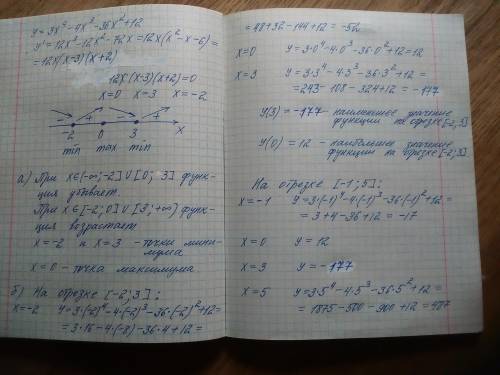 y=3x⁴-4x³-36x²+12
y'=12x³-12x²-72x=12x(x²-x-6)=
=12x(x-3)(x+2)
12x(x-3)(x+2)=0
x=0 x=3 x=-2
- + - +
-2 0 3 x
min max min
а) При x∈(-∞;-2]∪[0;3] функ-
ция убывает.
При x∈[-2;0]∪[3;+∞) функ-
ция возрастает
x=-2 и x=3 - точки мини-
мума
x=0 - точка максимума.
б) На отрезке [-2;3]:
x=-2 y=3·(-2)⁴-4·(-2)³-36·(-2)²+12=
=3·16-4·(-8)-36·4+12=
=48+32-144+12=-52
x=0 y=3·0⁴-4·0³-36·0²+12=12
x=3 y=3·3⁴-4·3³-36·3²+12=
=243-108-324+12=-177
y(3)=-177 - наименьшее значение
функции на отрезке [-2;3]
y(0)=12 - наибольшее значение
функции на отрезке [-2;3].
На отрезке [-1;5]:
x=-1 y=3·(-1)⁴-4·(-1)³-36·(-1)²+12=
=3+4-36+12=-17
x=0 y=12
x=3 y=-177
x=5 y=3·5⁴-4·5³-36·5²+12=
=1875-500-900+12=487